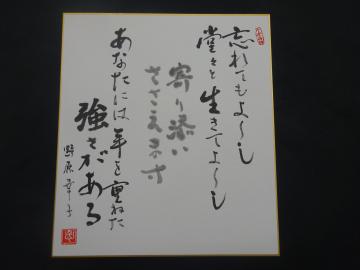 忘れてもよ〜し
堂々と生きてよ〜し
寄り添い
ささえます
あなたには年を重ねた
強さがある
野原幸子